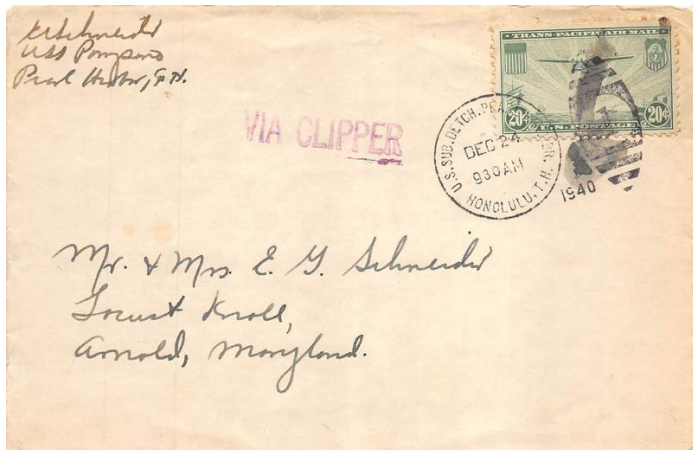 Schneider
USS Pompano
Pearl Harbor, T.H.
TRANS-PACIFIC AIR MAIL
20¢ U.S. POSTAGE 20¢
VIA CLIPPER
U.S. SUB. DETCH. PEA HBR.
DEC 24
930AM
HONOLULU. T.H.
1940
Mr. & Mrs. E. G. Schneider
Locust Knoll,
Arnold, Maryland.